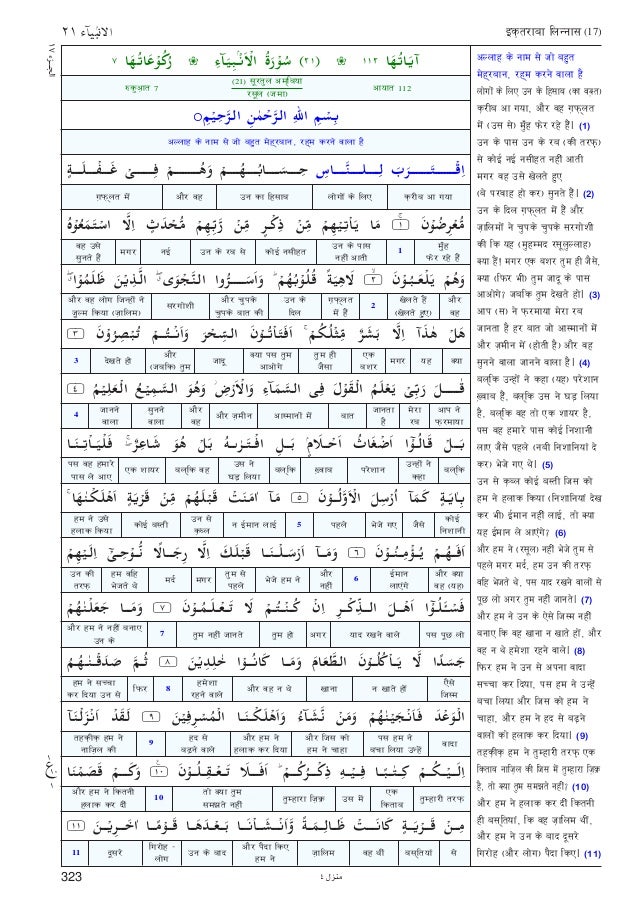 इक़तराबा लिन्नास (17)
الانبیآء ۲۱
اٰیَاتُهَا ۱۱۲ ❀ (۲۱) سُوْرَةُ الْاَنْۢبِیَآءِ ❀ رُكُوْعَاتُهَا ۷
आयात 112
(21) सूरतुल अम्बिया
रसूल (जमा)
रुकुआत 7
بِسْمِ اللهِ الرَّحْمٰنِ الرَّحِیْمِ
अल्लाह के नाम से जो बहुत मेह्रबान, रह्म करने वाला है
اِقْتَرَبَ لِلنَّاسِ حِسَابُهُمْ وَهُمْ فِیْ غَفْلَةٍ
क़रीब आ गया लोगों के लिए उन का हिसाब और वह ग़फ़्लत में
مُّعْرِضُوْنَ ۱ مَا یَاْتِیْهِمْ مِّنْ ذِكْرٍ مِّنْ رَّبِّهِمْ مُّحْدَثٍ اِلَّا اسْتَمَعُوْهُ
मुँह फेर रहे हैं 1 उन के पास नहीं आती कोई नसीहत उन के रब से नई मगर वह उसे सुनते हैं
وَهُمْ یَلْعَبُوْنَ ۲ لَاهِیَةً قُلُوْبُهُمْ وَاَسَرُّوا النَّجْوَی الَّذِیْنَ ظَلَمُوْا
और वह खेलते हैं (खेलते हुए) 2 ग़फ़्लत में हैं उन के दिल और चुपके चुपके बात की सरगोशी और वह लोग जिन्हों ने जुल्म किया (ज़ालिम)
هَلْ هٰذَآ اِلَّا بَشَرٌ مِّثْلُكُمْ اَفَتَاْتُوْنَ السِّحْرَ وَاَنْتُمْ تُبْصِرُوْنَ ۳
क्या यह मगर एक बशर तुम ही जैसा क्या पस तुम आओगे जादू और (जबकि) तुम देखते हो 3
قٰلَ رَبِّیْ یَعْلَمُ الْقَوْلَ فِی السَّمَآءِ وَالْاَرْضِ وَهُوَ السَّمِیْعُ الْعَلِیْمُ ۴
आप ने फ़रमाया मेरा रब जानता है बात आस्मानों में और ज़मीन और वह सुनने वाला जानने वाला 4
بَلْ قَالُوْٓا اَضْغَاثُ اَحْلَامٍ بَلِ افْتَرٰىهُ بَلْ هُوَ شَاعِرٌ فَلْیَاْتِنَا
बल्कि उन्हों ने कहा परेशान ख़्वाब बल्कि उस ने घड़ लिया बल्कि वह एक शायर पस वह हमारे पास ले आए
بِاٰیَةٍ كَمَآ اُرْسِلَ الْاَوَّلُوْنَ ۵ مَآ اٰمَنَتْ قَبْلَهُمْ مِّنْ قَرْیَةٍ اَهْلَكْنٰهَا
कोई निशानी जैसे भेजे गए पहले 5 न ईमान लाई उन से क़ब्ल कोई बस्ती हम ने उसे हलाक किया
اَفَهُمْ یُؤْمِنُوْنَ ۶ وَمَآ اَرْسَلْنَا قَبْلَكَ اِلَّا رِجَالًا نُّوْحِیْٓ اِلَیْهِمْ
और क्या वह (यह) ईमान लाएंगे 6 और नहीं भेजे हम ने तुम से पहले मगर मर्द हम वहि भेजते थे उन की तरफ़
فَسْـَٔلُوْٓا اَهْلَ الذِّكْرِ اِنْ كُنْتُمْ لَا تَعْلَمُوْنَ ۷ وَمَا جَعَلْنٰهُمْ
पस पूछ लो याद रखने वाले अगर तुम हो तुम नहीं जानते 7 और हम ने नहीं बनाए उन के
جَسَدًا لَّا یَاْكُلُوْنَ الطَّعَامَ وَمَا كَانُوْا خٰلِدِیْنَ ۸ ثُمَّ صَدَقْنٰهُمُ
ऐसे जिस्म न खाते हों खाना और वह न थे हमेशा रहने वाले 8 फिर हम ने सच्चा कर दिया उन से
الْوَعْدَ فَاَنْجَیْنٰهُمْ وَمَنْ نَّشَآءُ وَاَهْلَكْنَا الْمُسْرِفِیْنَ ۹ لَقَدْ اَنْزَلْنَآ
वादा पस हम ने बचा लिया उन्हें और जिस को हम ने चाहा और हम ने हलाक कर दिया हद से बढ़ने वाले 9 तहक़ीक़ हम ने नाज़िल की
اِلَیْكُمْ كِتٰبًا فِیْهِ ذِكْرُكُمْ اَفَلَا تَعْقِلُوْنَ ۱۰ وَكَمْ قَصَمْنَا
तुम्हारी तरफ़ एक किताब उस में तुम्हारा ज़िक्र तो क्या तुम समझते नहीं 10 और हम ने कितनी हलाक कर दीं
مِنْ قَرْیَةٍ كَانَتْ ظَالِمَةً وَّاَنْشَاْنَا بَعْدَهَا قَوْمًا اٰخَرِیْنَ ۱۱
से बस्तियां वह थीं ज़ालिम और पैदा किए हम ने उन के बाद गिरोह - लोग दूसरे 11
अल्लाह के नाम से जो बहुत
मेह्रबान, रह्म करने वाला है
लोगों के लिए उन के हिसाब (का वक़्त)
क़रीब आ गया, और वह ग़फ़्लत
में (उस से) मुँह फेर रहे हैं। (1)
उन के पास उन के रब (की तरफ़)
से कोई नई नसीहत नहीं आती
मगर वह उसे खेलते हुए
(बे परवाह हो कर) सुनते हैं। (2)
उन के दिल ग़फ़्लत में हैं और
ज़ालिमों ने चुपके चुपके सरगोशी
की कि यह (मुहम्मद रसूलुल्लाह)
क्या है। मगर एक बशर तुम ही जैसे,
क्या (फिर भी) तुम जादू के पास
आओगे? जबकि तुम देखते हो। (3)
आप (स) ने फ़रमाया मेरा रब
जानता है हर बात जो आस्मानों में
और ज़मीन में (होती है) और वह
सुनने वाला जानने वाला है। (4)
बल्कि उन्हों ने कहा (यह) परेशान
ख़्वाब हैं, बल्कि उस ने घड़ लिया
है, बल्कि वह तो एक शायर है,
पस वह हमारे पास कोई निशानी
लाए जैसे पहले (नबी निशानियां दे
कर) भेजे गए थे। (5)
उन से क़ब्ल कोई बस्ती जिस को
हम ने हलाक किया (निशानियां देख
कर भी) ईमान नहीं लाई, तो क्या
यह ईमान ले आएंगे? (6)
और हम ने (रसूल) नहीं भेजे तुम से
पहले मगर मर्द, हम उन की तरफ़
वहि भेजते थे, पस याद रखने वालों से
पूछ लो अगर तुम नहीं जानते। (7)
और हम ने उन के ऐसे जिस्म नहीं
बनाए कि वह खाना न खाते हों, और
वह न थे हमेशा रहने वाले। (8)
फिर हम ने उन से अपना वादा
सच्चा कर दिया, पस हम ने उन्हें
बचा लिया और जिस को हम ने
चाहा, और हम ने हद से बढ़ने
वालों को हलाक कर दिया। (9)
तहक़ीक़ हम ने तुम्हारी तरफ़ एक
किताब नाज़िल की जिस में तुम्हारा ज़िक्र
है, तो क्या तुम समझते नहीं? (10)
और हम ने हलाक कर दीं कितनी
ही बस्तियां, कि वह ज़ालिम थीं,
और हम ने उन के बाद दूसरे
गिरोह (और लोग) पैदा किए। (11)
323
منزل ۴